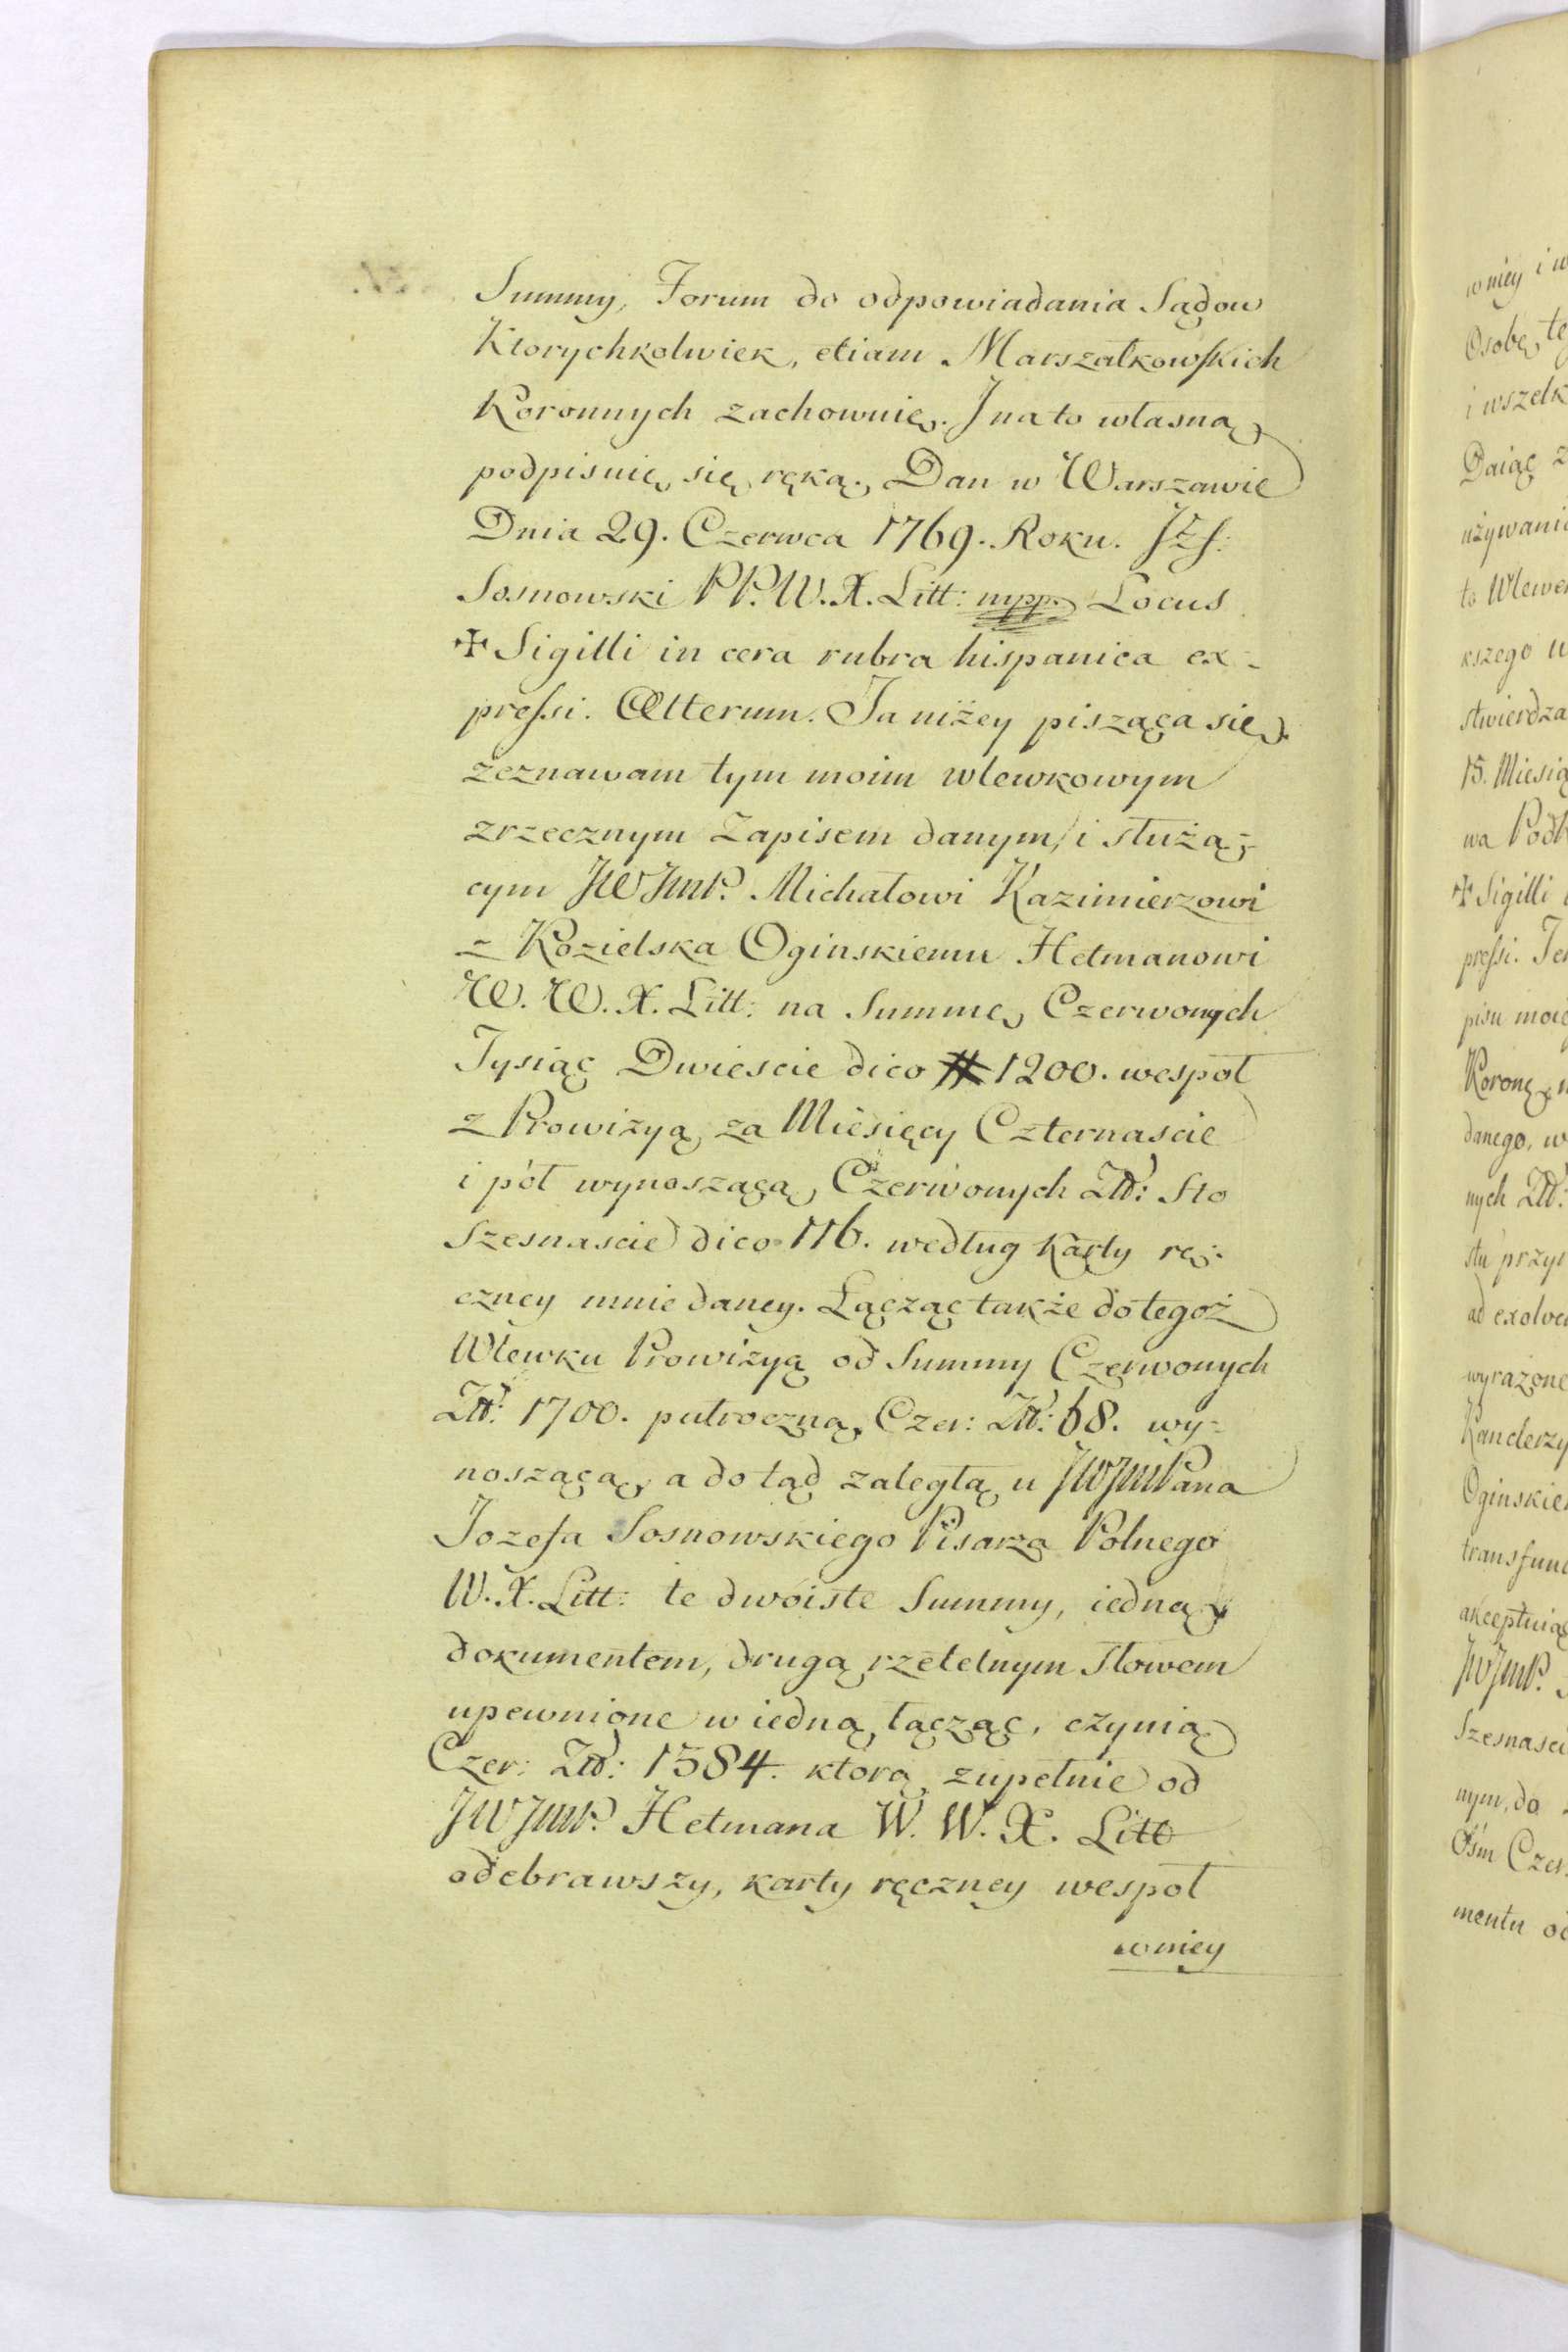 Summy, Forum do odpowiadania Sądow
Ktorychkolwiek, etiam Marszałkowskich
Koronnych zachownię. J na to własną
podpisuię się ręką. Dan w Warszawie
Dnia 29. Czerwca 1769. Roku. Jzf:
Sosnowski P P. W. X. Litt: mpp. Locus
✠ Sigilli in cera rubra hispanica ex-
pressi. Alterum. Ja niżey pisząca się
zeznawam tym moim wlewkowym
zrzecznym Zapisem danym, i służą-
cym JWJmP. Michałowi Kazimierzowi
z Kozielska Oginskiemu Hetmanowi
W. W. X. Litt: na Summę Czerwonych
Tysiąc Dwiescie dico # 1200. wespoł
z Prowizyą za Miesięcy Czternascie
i pół wynoszącą, Czerwonych Zł: Sto
Szesnascie dico 116. według Karty rę-
czney mnie daney. Łącząc także do tegoż
Wlewku Prowizyą od Summy Czerwonych
Zł: 1700. pułroczną, Czer: Zł: 68. wy-
noszącą, a do tąd zaległą u JWJmPana
Jozefa Sosnowskiego Pisarza Polnego
W. X. Litt: te dwoiste Summy, iedną
dokumentem, drugą rzetelnym słowem
upewnione w iedną łącząc, czynią
Czer: Zł: 1384. ktorą zupełnie od
JWJmP. Hetmana W. W. X. Litt
odebrawszy, karty ręczney wespoł
w niey
w niey i w
Osobę te
i wszelk
Daiąc z
używani
to Wlewe
kszego u
stwierdza
15. Miesią
wa Podk
✠ Sigilli
pressi. Te
pisu moie
Koronę
danego, w
nych Zł:
stu przyi
ad exolve
wyrażone
Kanclerzy
Oginskie
transfun
akceptuią
JWJmP.
Szesnasci
nym, do
Ośm Czer
mentu od